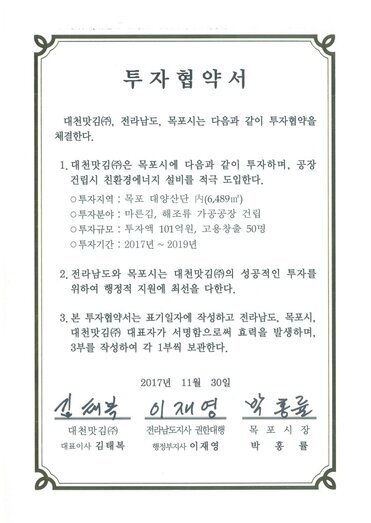 투자협약서
대천맛김㈜, 전라남도, 목포시는 다음과 같이 투자협약을
체결한다.
1. 대천맛김㈜은 목포시에 다음과 같이 투자하며, 공장
건립시 친환경에너지 설비를 적극 도입한다.
○투자지역 : 목포 대양산단 內(6,489㎡)
○투자분야 : 마른김, 해조류 가공공장 건립
○투자규모 : 투자액 101억원, 고용창출 50명
○투자기간 : 2017년 ~ 2019년
2. 전라남도와 목포시는 대천맛김㈜의 성공적인 투자를
위하여 행정적 지원에 최선을 다한다.
3. 본 투자협약서는 표기일자에 작성하고 전라남도, 목포시,
대천맛김㈜ 대표자가 서명함으로써 효력을 발생하며,
3부를 작성하여 각 1부씩 보관한다.
2017년 11월 30일
김태복 이재영 박홍률
대천맛김㈜ 전라남도지사 권한대행 목포시장
대표이사 김태복 행정부지사 이재영 박홍률